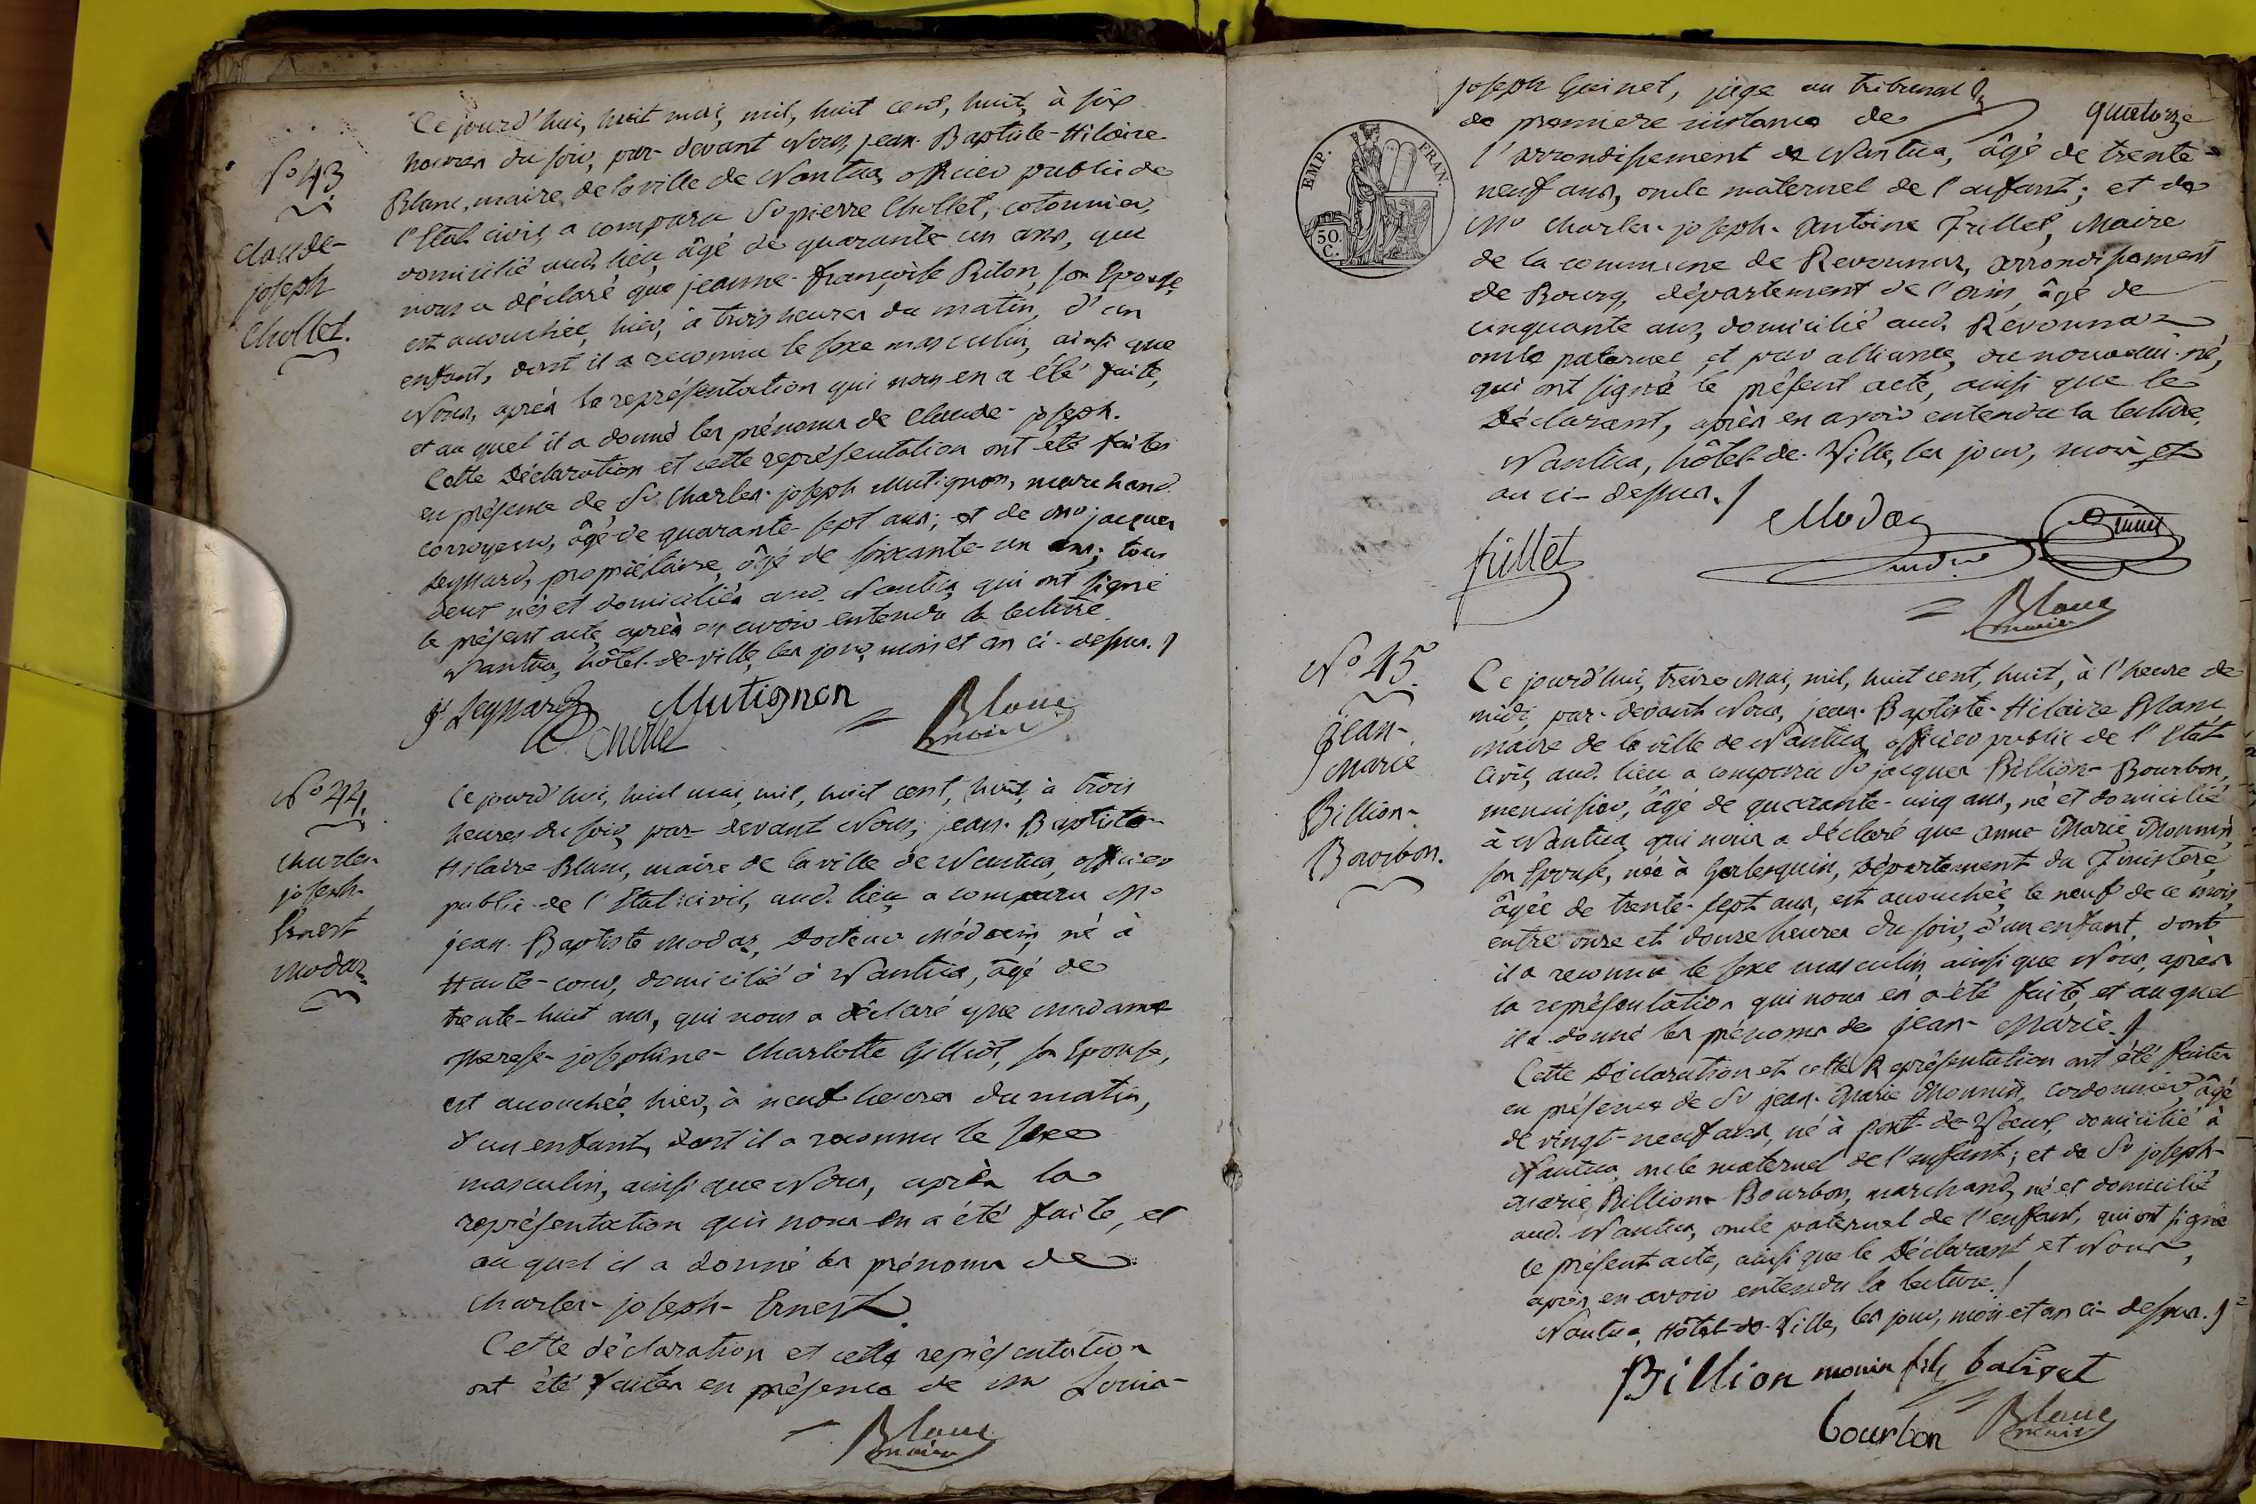 Ce jourd'hui, huit mai, mil, huit cent, huit, à six
heures du soir, par-devant Nous, jean-Baptiste-Hilaire
Blanc, maire de la ville de Nantua, officier public de
l'Etat civil, a comparu Sr pierre Chollet, cotonnier,
domicilié aud. lieu, âgé de quarante-un ans, qui
nous a déclaré que jeanne-françoise Rilon, son Epouse,
est accouchée, hier, à trois heures du matin, d'un
enfant, dont il a reconnu le sexe masculin, ainsi que
Nous, après la représentation qui nous en a été faite,
et auquel il a donné les prénoms de Claude-joseph.
Cette Déclaration et cette représentation ont été faites
en présence de Sr Charles-joseph Mutignon, marchand
corroyeur, âgé de quarante-sept ans; et de Mr jacques
Leyssard, propriétaire, âgé de soixante-un ans; tous
deux nés et domiciliés aud. Nantua, qui ont signé
le présent acte, après en avoir entendu la lecture.
Nantua, hôtel-de-ville, les jour, mois et an ci-dessus.
No 43.
Claude-
joseph
Chollet.
Js Leyssard Mutignon
Chollet
Blanc
maire
No 44.
Charles-
joseph-
Ernest
Modas
Ce jourd'hui, huit mai, mil, huit cent, huit, à trois
heures du soir, par-devant Nous, jean-Baptiste-
Hilaire Blanc, maire de la ville de Nantua, officier
public de l'Etat civil, aud. lieu, a comparu Mr
jean-Baptiste Modas, Docteur Médecin, né à
Haute-cour, domicilié à Nantua, âgé de
trente-huit ans, qui nous a déclaré que Madame
therese-joséphine-Charlotte Gilliot, son Epouse,
est accouchée, hier, à neuf heures du matin,
d'un enfant, dont il a reconnu le sexe
masculin, ainsi que Nous, après la
représentation qui nous en a été faite, et
auquel il a donné les prénoms de
Charles-joseph-Ernest.
Cette déclaration et cette représentation
ont été faites en présence de Mr Louis-
Blanc
maire
joseph Guinet, juge au tribunal
de premiere instance de
quatorze
EMP. FRAN.
50.
C.
l'arrondissement de Nantua, âgé de trente-
neuf ans, oncle maternel de l'enfant; et de
Mr Charles-joseph-Antoine frillet, Maire
de la commune de Revonnas, arrondissement
de Bourg, département de l'Ain, âgé de
cinquante ans, domicilié aud. Revonnas
oncle paternel, et par alliance, du nouveau-né,
qui ont signé le présent acte, ainsi que le
Déclarant, après en avoir entendu la lecture.
Nantua, hôtel-de-Ville, les jour, mois et
an ci-dessus.
frillet Modas Guinet
Blanc
maire
No 45.
Jean-
Marie
Billion-
Bourbon.
Ce jourd'hui, treize Mai, mil, huit cent, huit, à l'heure de
midi, par-devant Nous, jean-Baptiste-Hilaire Blanc
maire de la ville de Nantua, officier public de l'Etat
civil, aud. lieu, a comparu Sr jacques Billion-Bourbon,
menuisier, âgé de quarante-cinq ans, né et domicilié
à Nantua, qui nous a déclaré que anne-Marie Monnin,
son Epouse, née à Gerlesquin, Département du Finistère,
âgée de trente-sept ans, est accouchée, le neuf de ce mois,
entre onze et douze heures du soir, d'un enfant, dont
il a reconnu le sexe masculin, ainsi que Nous, après
la représentation qui nous en a été faite, et auquel
il a donné les prénoms de jean-Marie.
Cette Déclaration et cette Représentation ont été faites
en présence de Sr jean-Marie Monnin, cordonnier, âgé
de vingt-neuf ans, né à pont-de-Vaux, domicilié à
Nantua, oncle maternel de l'enfant; et de Sr joseph-
marie Billion-Bourbon, marchand, né et domicilié
aud. Nantua, oncle paternel de l'enfant, qui ont signé
le présent acte, ainsi que le Déclarant et Nous,
après en avoir entendu la lecture.
Nantua, Hôtel-de-Ville, les jour, mois et an ci-dessus.
Billion monin fils
bourbon Blanc
maire